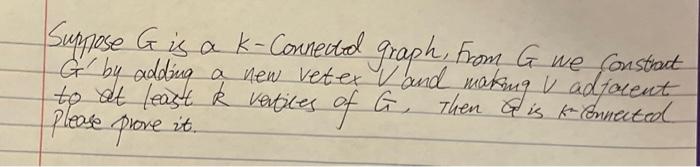 Suppose G is a k-Connected graph, From G we Constract
G' by adding a new vetex V and making V adjacent
to at least k vertices of G, Then G' is k-Connected
Please prove it.